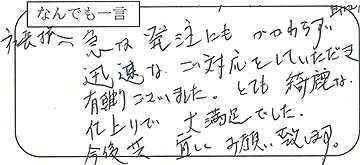 なんでも一言
社長様へ 急な発注にもかかわらず、
迅速なご対応をしていただき
有難うございました。とても綺麗な
仕上りで大満足でした。
今後共宜しくお願い致します。